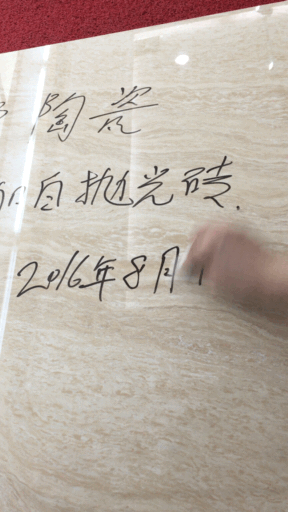 陶瓷
自抛光砖.
2016年8月1